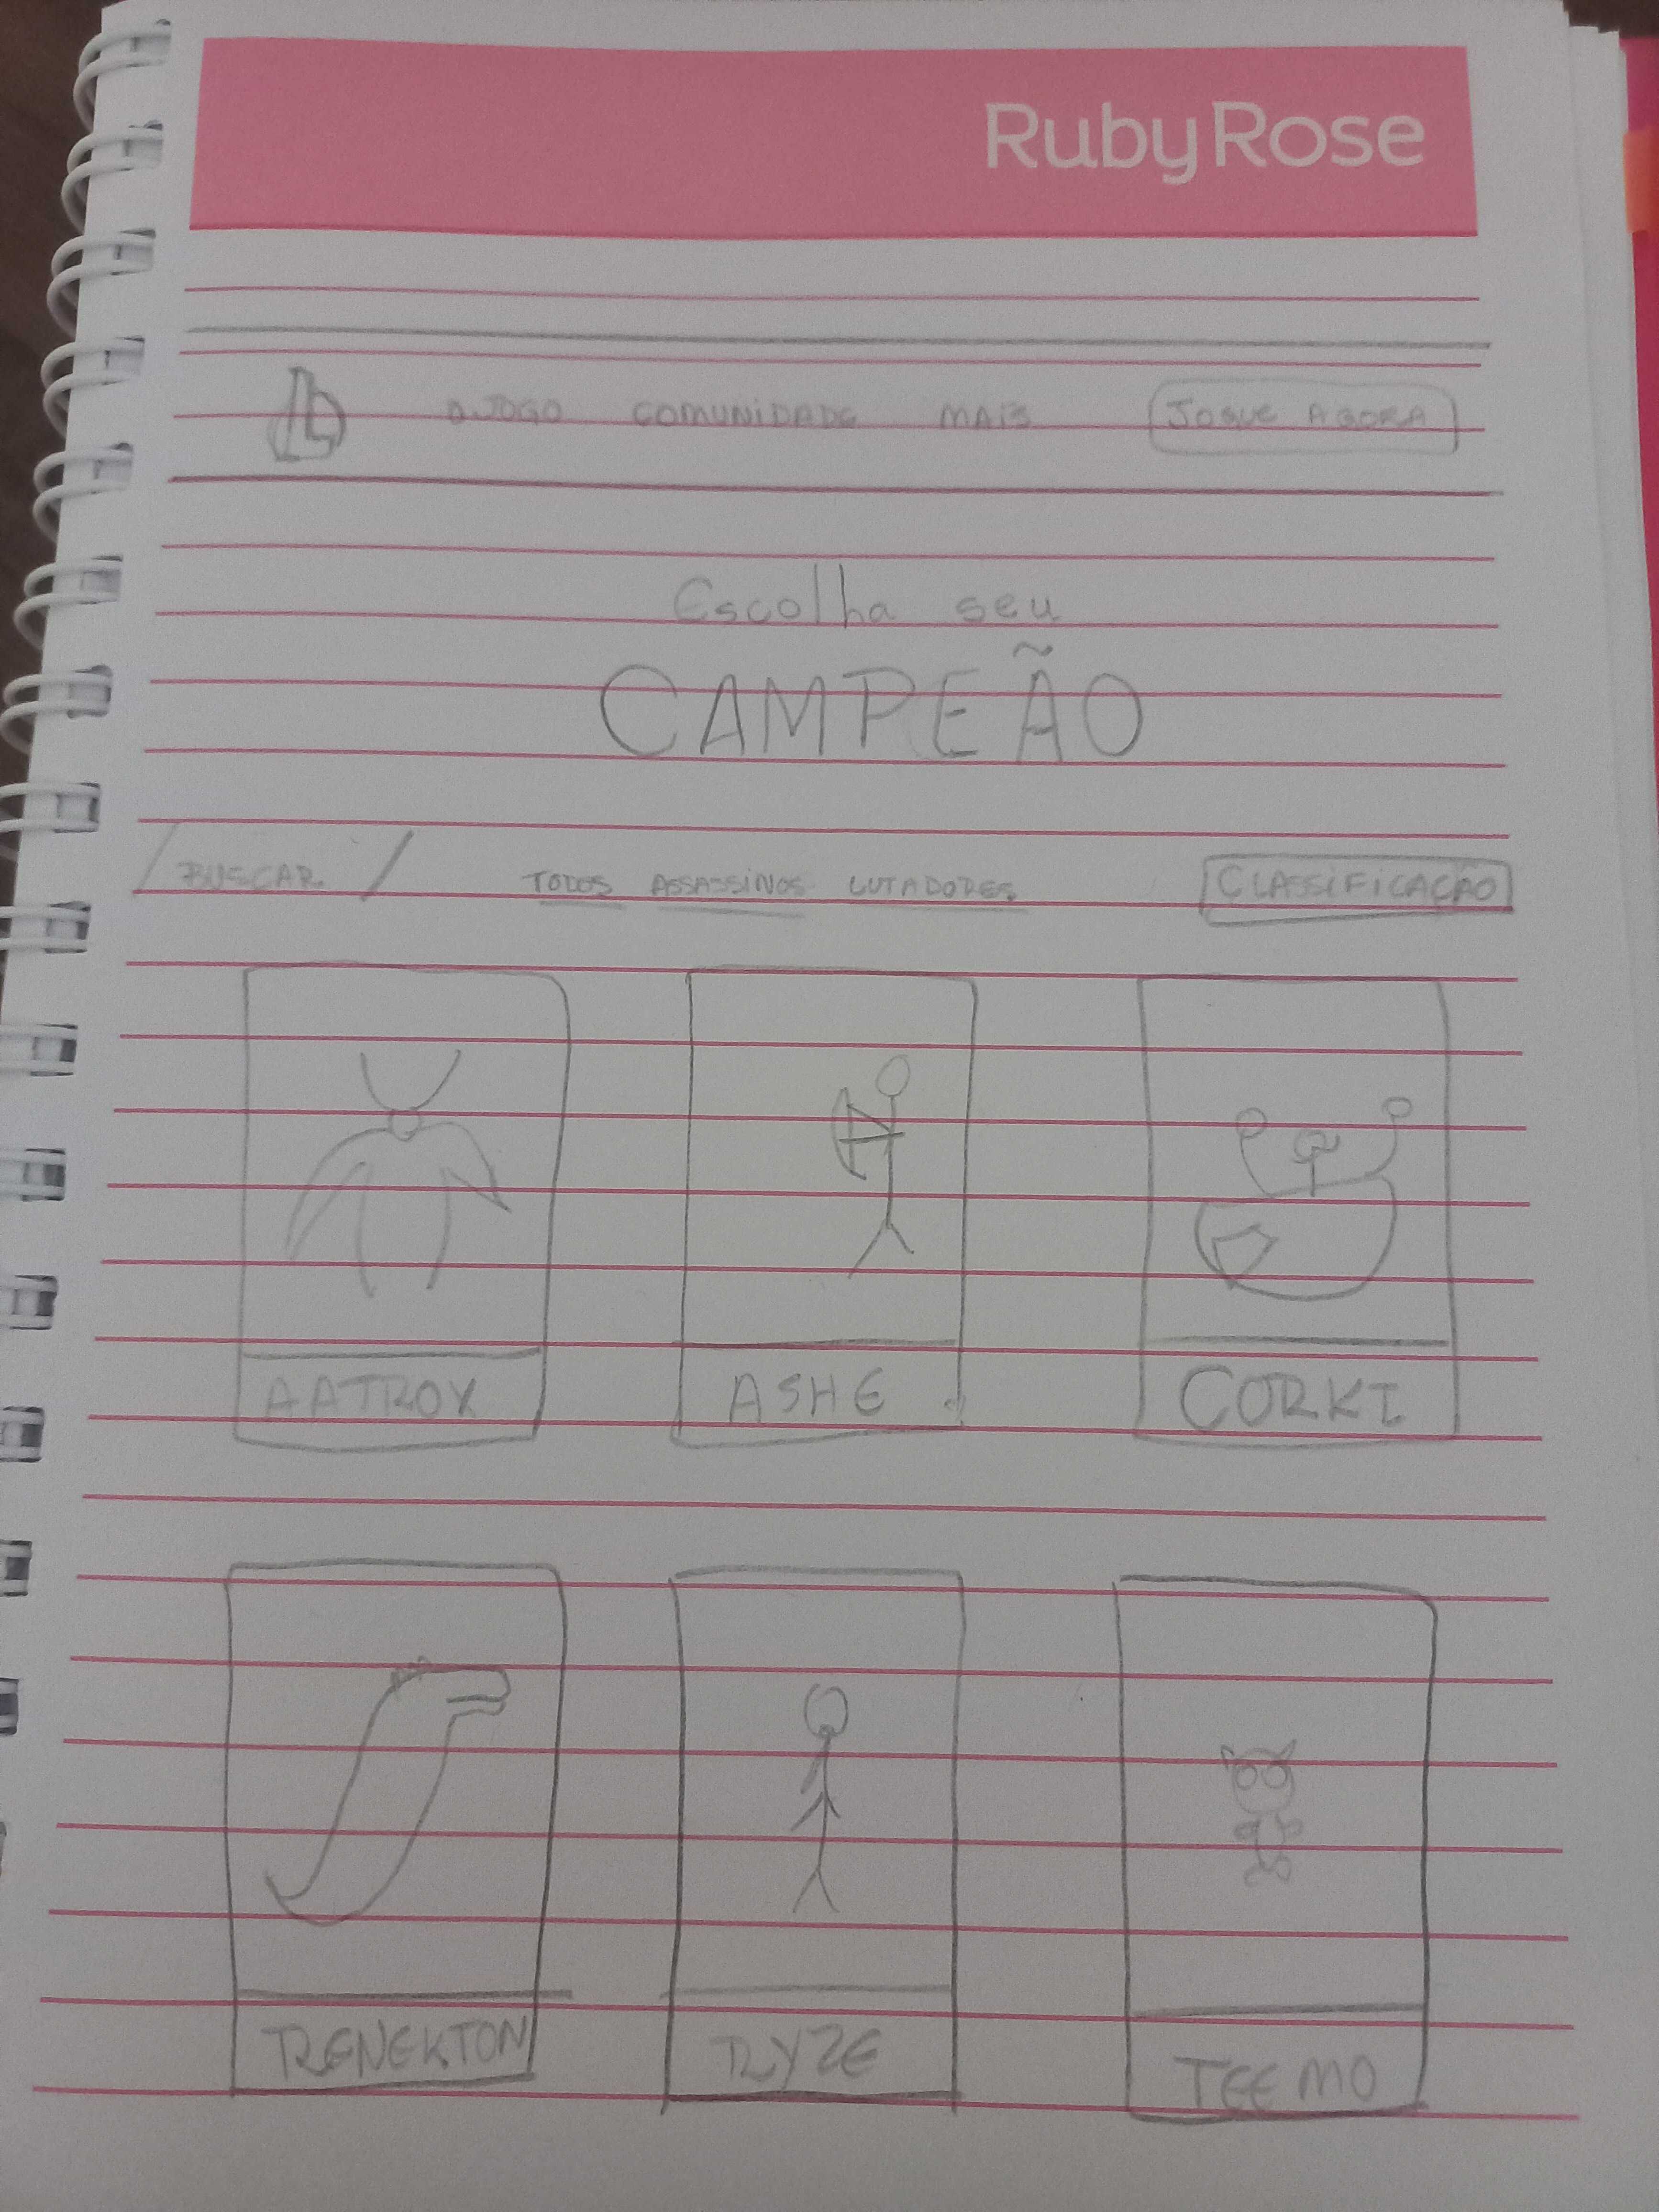 Ruby Rose
O JOGO COMUNIDADE MAIS JOGUE AGORA
Escolha seu
CAMPEÃO
BUSCAR TODOS ASSASSINOS LUTADORES CLASSIFICAÇÃO
AATROX ASHE CORKI
RENEKTON RYZE TEEMO